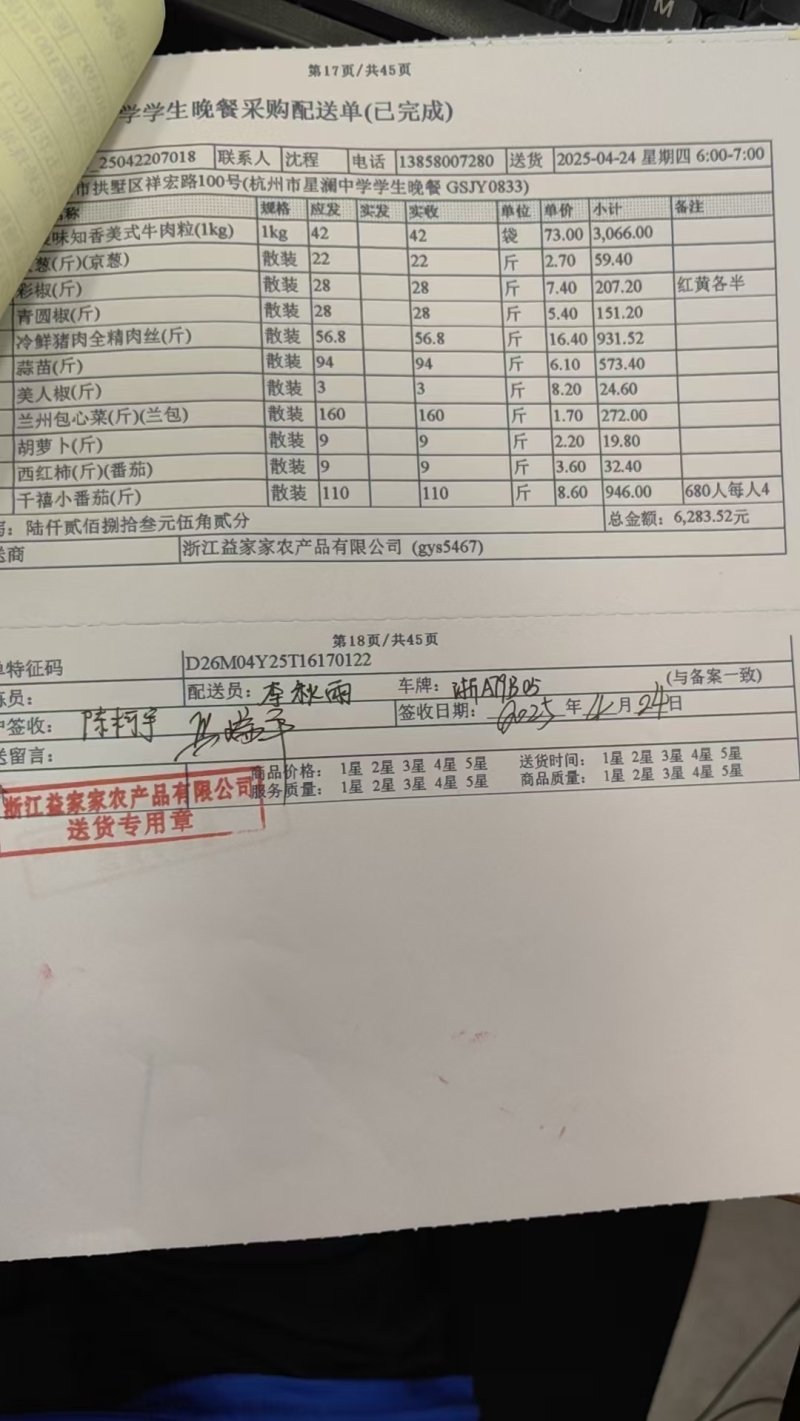 第17页/共45页
学学生晚餐采购配送单(已完成)
_25042207018 联系人 沈程 电话 13858007280 送货 2025-04-24 星期四 6:00-7:00
市拱墅区祥宏路100号(杭州市星澜中学学生晚餐 GSJY0833)
名称 规格 应发 实发 实收 单位 单价 小计 备注
味知香美式牛肉粒(1kg) 1kg 42 42 袋 73.00 3,066.00
葱(斤)(京葱) 散装 22 22 斤 2.70 59.40
彩椒(斤) 散装 28 28 斤 7.40 207.20 红黄各半
青圆椒(斤) 散装 28 28 斤 5.40 151.20
冷鲜猪肉全精肉丝(斤) 散装 56.8 56.8 斤 16.40 931.52
蒜苗(斤) 散装 94 94 斤 6.10 573.40
美人椒(斤) 散装 3 3 斤 8.20 24.60
兰州包心菜(斤)(兰包) 散装 160 160 斤 1.70 272.00
胡萝卜(斤) 散装 9 9 斤 2.20 19.80
西红柿(斤)(番茄) 散装 9 9 斤 3.60 32.40
千禧小番茄(斤) 散装 110 110 斤 8.60 946.00 680人每人4
: 陆仟贰佰捌拾叁元伍角贰分 总金额: 6,283.52元
送商 浙江益家家农产品有限公司 (gys5467)
第18页/共45页
单特征码 D26M04Y25T16170122
员: 配送员: 李秋雨 车牌: 浙A79B05 (与备案一致)
户签收: 陈柯宇 签收日期: 2025年 月24日
送留言:
商品价格: 1星 2星 3星 4星 5星 送货时间: 1星 2星 3星 4星 5星
服务质量: 1星 2星 3星 4星 5星 商品质量: 1星 2星 3星 4星 5星
浙江益家家农产品有限公司
送货专用章